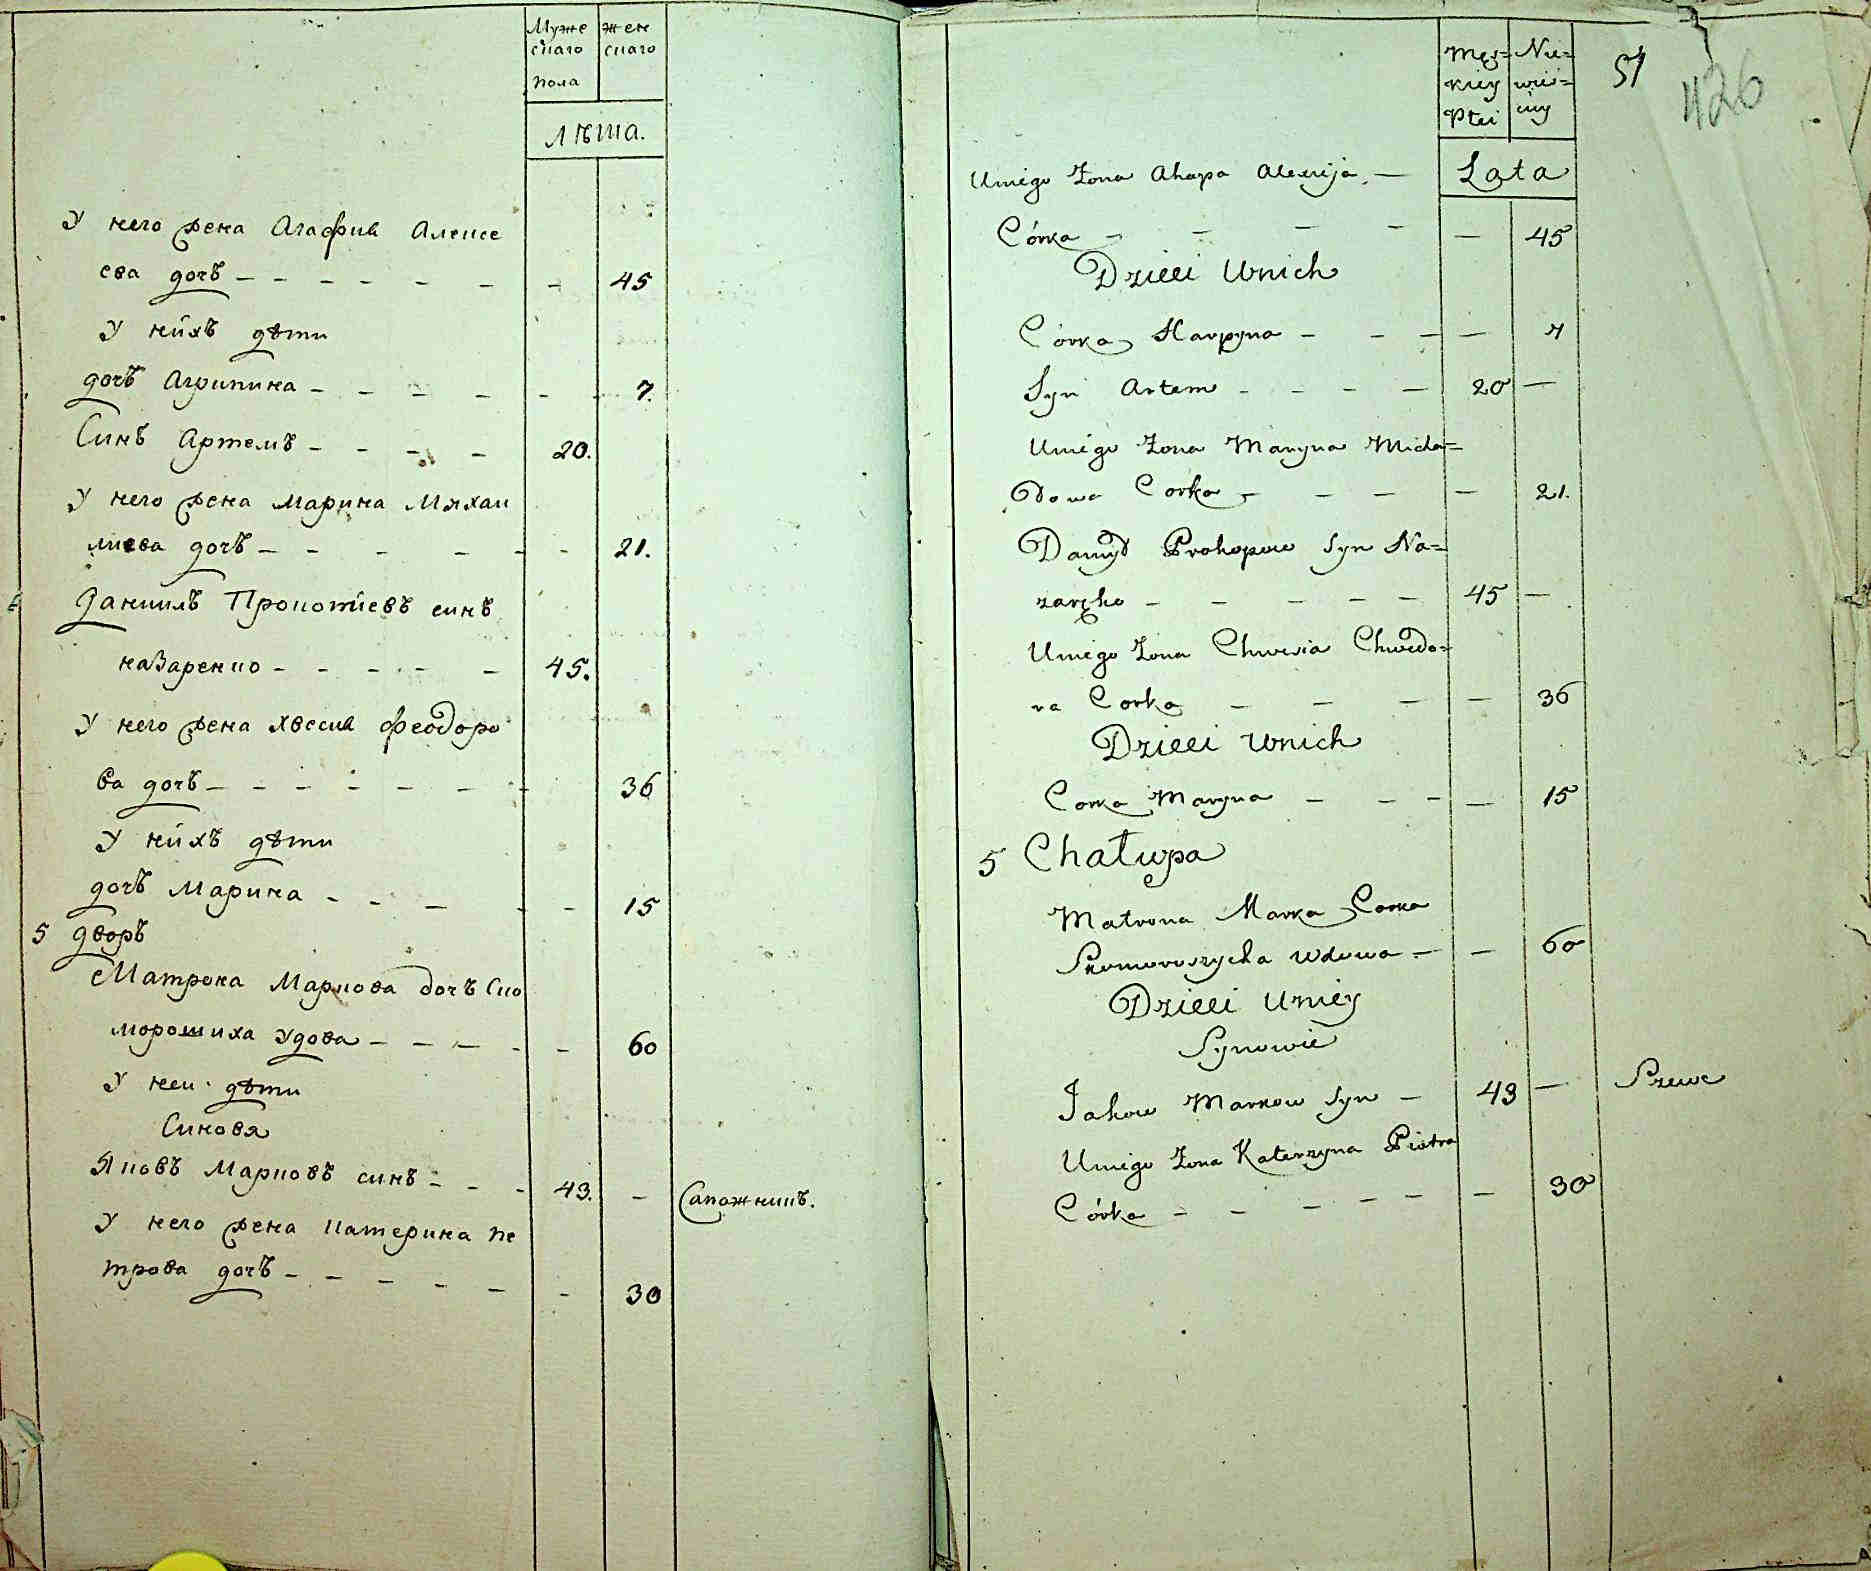 Муже
скаго
пола
жен
скаго
лѣта.
У него жена Агафия Алексе
ева дочь — — — — — — — 45
У нихъ дѣти
дочь Агрипина — — — — — — 7.
Синъ Артемъ — — — — 20.
У него жена Марина Михаи
лиева дочь — — — — — — 21.
Даниилъ Прокопиевъ синъ
назаренко — — — — — 45.
У него жена Хвесия Феодоро
ва дочь — — — — — — — 36
У нихъ дѣти
дочь Марина — — — — — 15
5 дворъ
Матрона Маркова дочь Ско
морошиха удова — — — — — 60
У неи дѣти
Синовя
Яковъ Марковъ синъ — — — 43. — Сапожникъ.
У него жена Катерина пе
трова дочь — — — — — — 30
Męs=
kiey
Płci
Nie=
wieś=
ciey
51
426
Lata
Uniego Żona Ahapa Alexija —
Córka — — — — — 45
Dzieci Unich
Córka Harpyna — — — — 7
Syn Artem — — — — 20 —
Uniego Żona Maryna Micha=
łowa Corka — — — — 21.
Danyło Prokopow Syn Na=
zaręko — — — — — 45 —
Uniego Żona Chwesia Chwedo=
ra Corka — — — — 36
Dzieci Unich
Corka Maryna — — — — 15
5 Chałupa
Matrona Marka Corka
Skomoroszycha Wdowa — — 60
Dzieci Uniey
Synowie
Jakow Markow Syn — 43 — Szewc
Uniego Żona Katerzyna Piotra
Córka — — — — — — 30